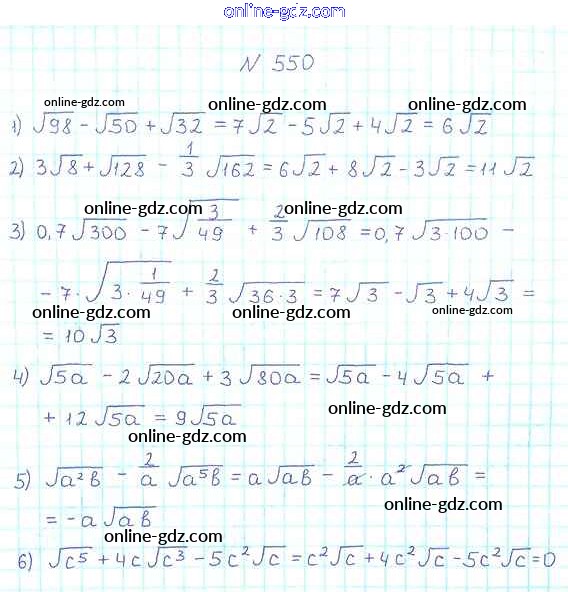 online-gdz.com
N 550
online-gdz.com online-gdz.com online-gdz.com
1) √98 - √50 + √32 = 7√2 - 5√2 + 4√2 = 6√2
2) 3√8 + √128 - 1/3 √162 = 6√2 + 8√2 - 3√2 = 11√2
online-gdz.com online-gdz.com
3) 0,7√300 - 7√(3/49) + 2/3 √108 = 0,7√(3·100) -
- 7·√(3·1/49) + 2/3 √(36·3) = 7√3 - √3 + 4√3 =
online-gdz.com online-gdz.com online-gdz.com
= 10√3
4) √5a - 2√20a + 3√80a = √5a - 4√5a +
online-gdz.com
+ 12√5a = 9√5a
online-gdz.com
5) √a²b - 2/a √a⁵b = a√ab - 2/a · a²√ab =
online-gdz.com
= -a√ab
online-gdz.com
6) √c⁵ + 4c√c³ - 5c²√c = c²√c + 4c²√c - 5c²√c = 0
online-gdz.com